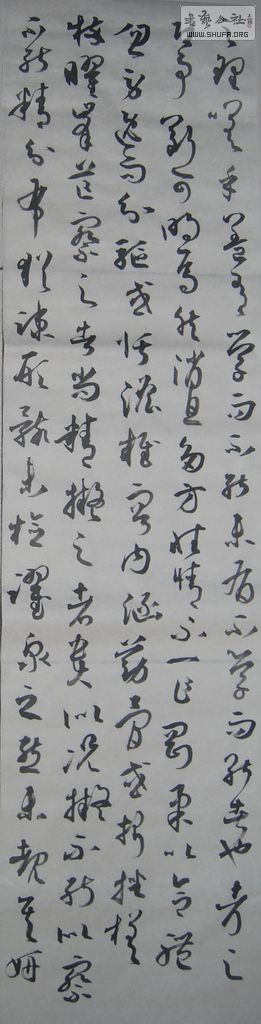 理嗟乎蓋有學而不能未有不學而能者也考之
即事斷可明焉然消息多方性情不一乍剛柔以合體
忽勞逸而分驅或恬澹雍容內涵筋骨或折挫槎
枿曜峯芒察之者尚精擬之者貴似況擬不能似察
不能精分布猶疎形骸未檢躍泉之態未覩其妍
WWW.SHUFA.ORG